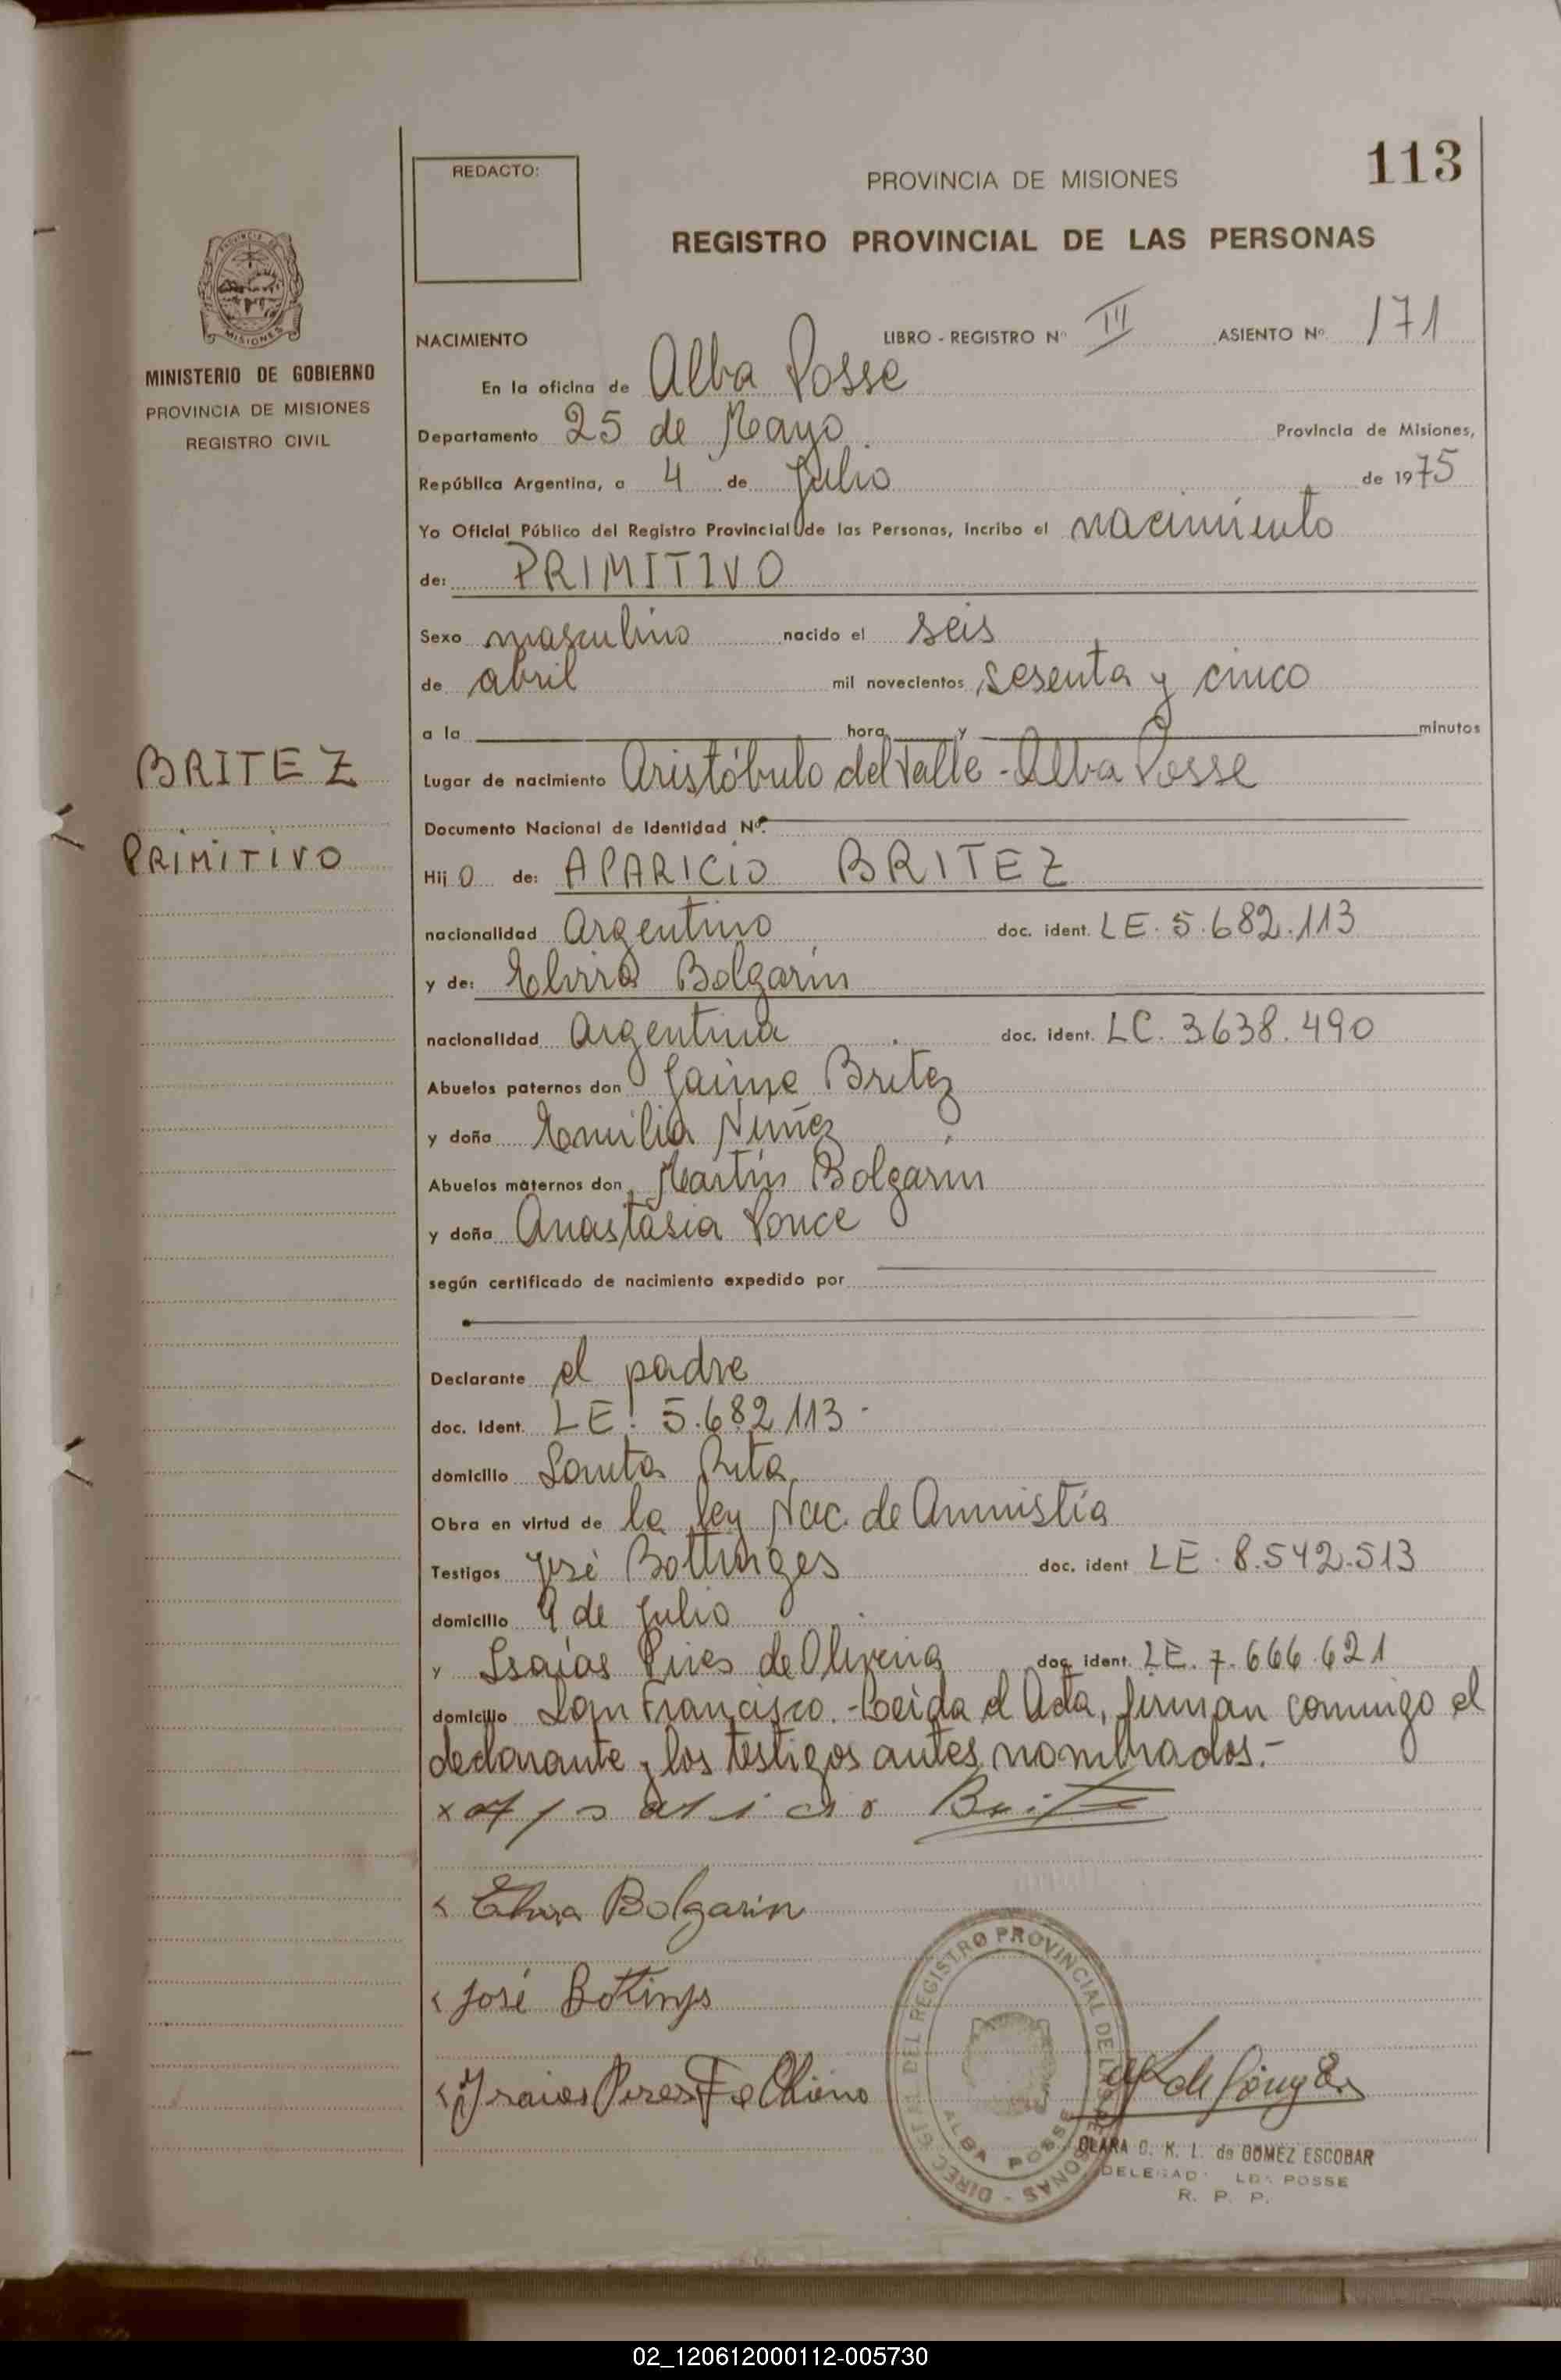 113
REDACTO:
PROVINCIA DE MISIONES
REGISTRO PROVINCIAL DE LAS PERSONAS
PROVINCIA DE
MISIONES
MINISTERIO DE GOBIERNO
PROVINCIA DE MISIONES
REGISTRO CIVIL
NACIMIENTO LIBRO - REGISTRO Nº III ASIENTO Nº 171
En la oficina de Alba Posse
Departamento 25 de Mayo Provincia de Misiones,
República Argentina, a 4 de Julio de 1975
Yo Oficial Público del Registro Provincial de las Personas, incribo el nacimiento
de: PRIMITIVO
Sexo masculino nacido el seis
de abril mil novecientos sesenta y cinco
a la hora y minutos
BRITEZ
Lugar de nacimiento Aristóbulo del Valle - Alba Posse
Documento Nacional de Identidad Nº
PRIMITIVO
Hij o de: APARICIO BRITEZ
nacionalidad Argentino doc. ident. LE. 5.682.113
y de: Elvira Bolgarin
nacionalidad Argentina doc. ident. LC. 3638.490
Abuelos paternos don Jaime Britez
y doña Emilia Núñez
Abuelos maternos don Martín Bolgarin
y doña Anastasia Ponce
según certificado de nacimiento expedido por
Declarante el padre
doc. Ident. LE. 5.682113-
domicilio Santa Rita
Obra en virtud de la ley Nac. de Amnistía
Testigos José Bottinges doc. ident LE. 8.542.513
domicilio 9 de Julio
y Isaías Pires de Oliveira doc. ident. LE. 7.666.621
domicilio San Francisco. - Leída el Acta, firman conmigo el
declarante y los testigos antes nombrados.-
x Aparicio Brite
x Elvira Bolgarin
x José Botinges
DIREC. GRAL. DEL REGISTRO PROVINCIAL DE LAS PERSONAS
ALBA POSSE
CLARA O. K. L. de GOMEZ ESCOBAR
R. P. P.
02_120612000112-005730